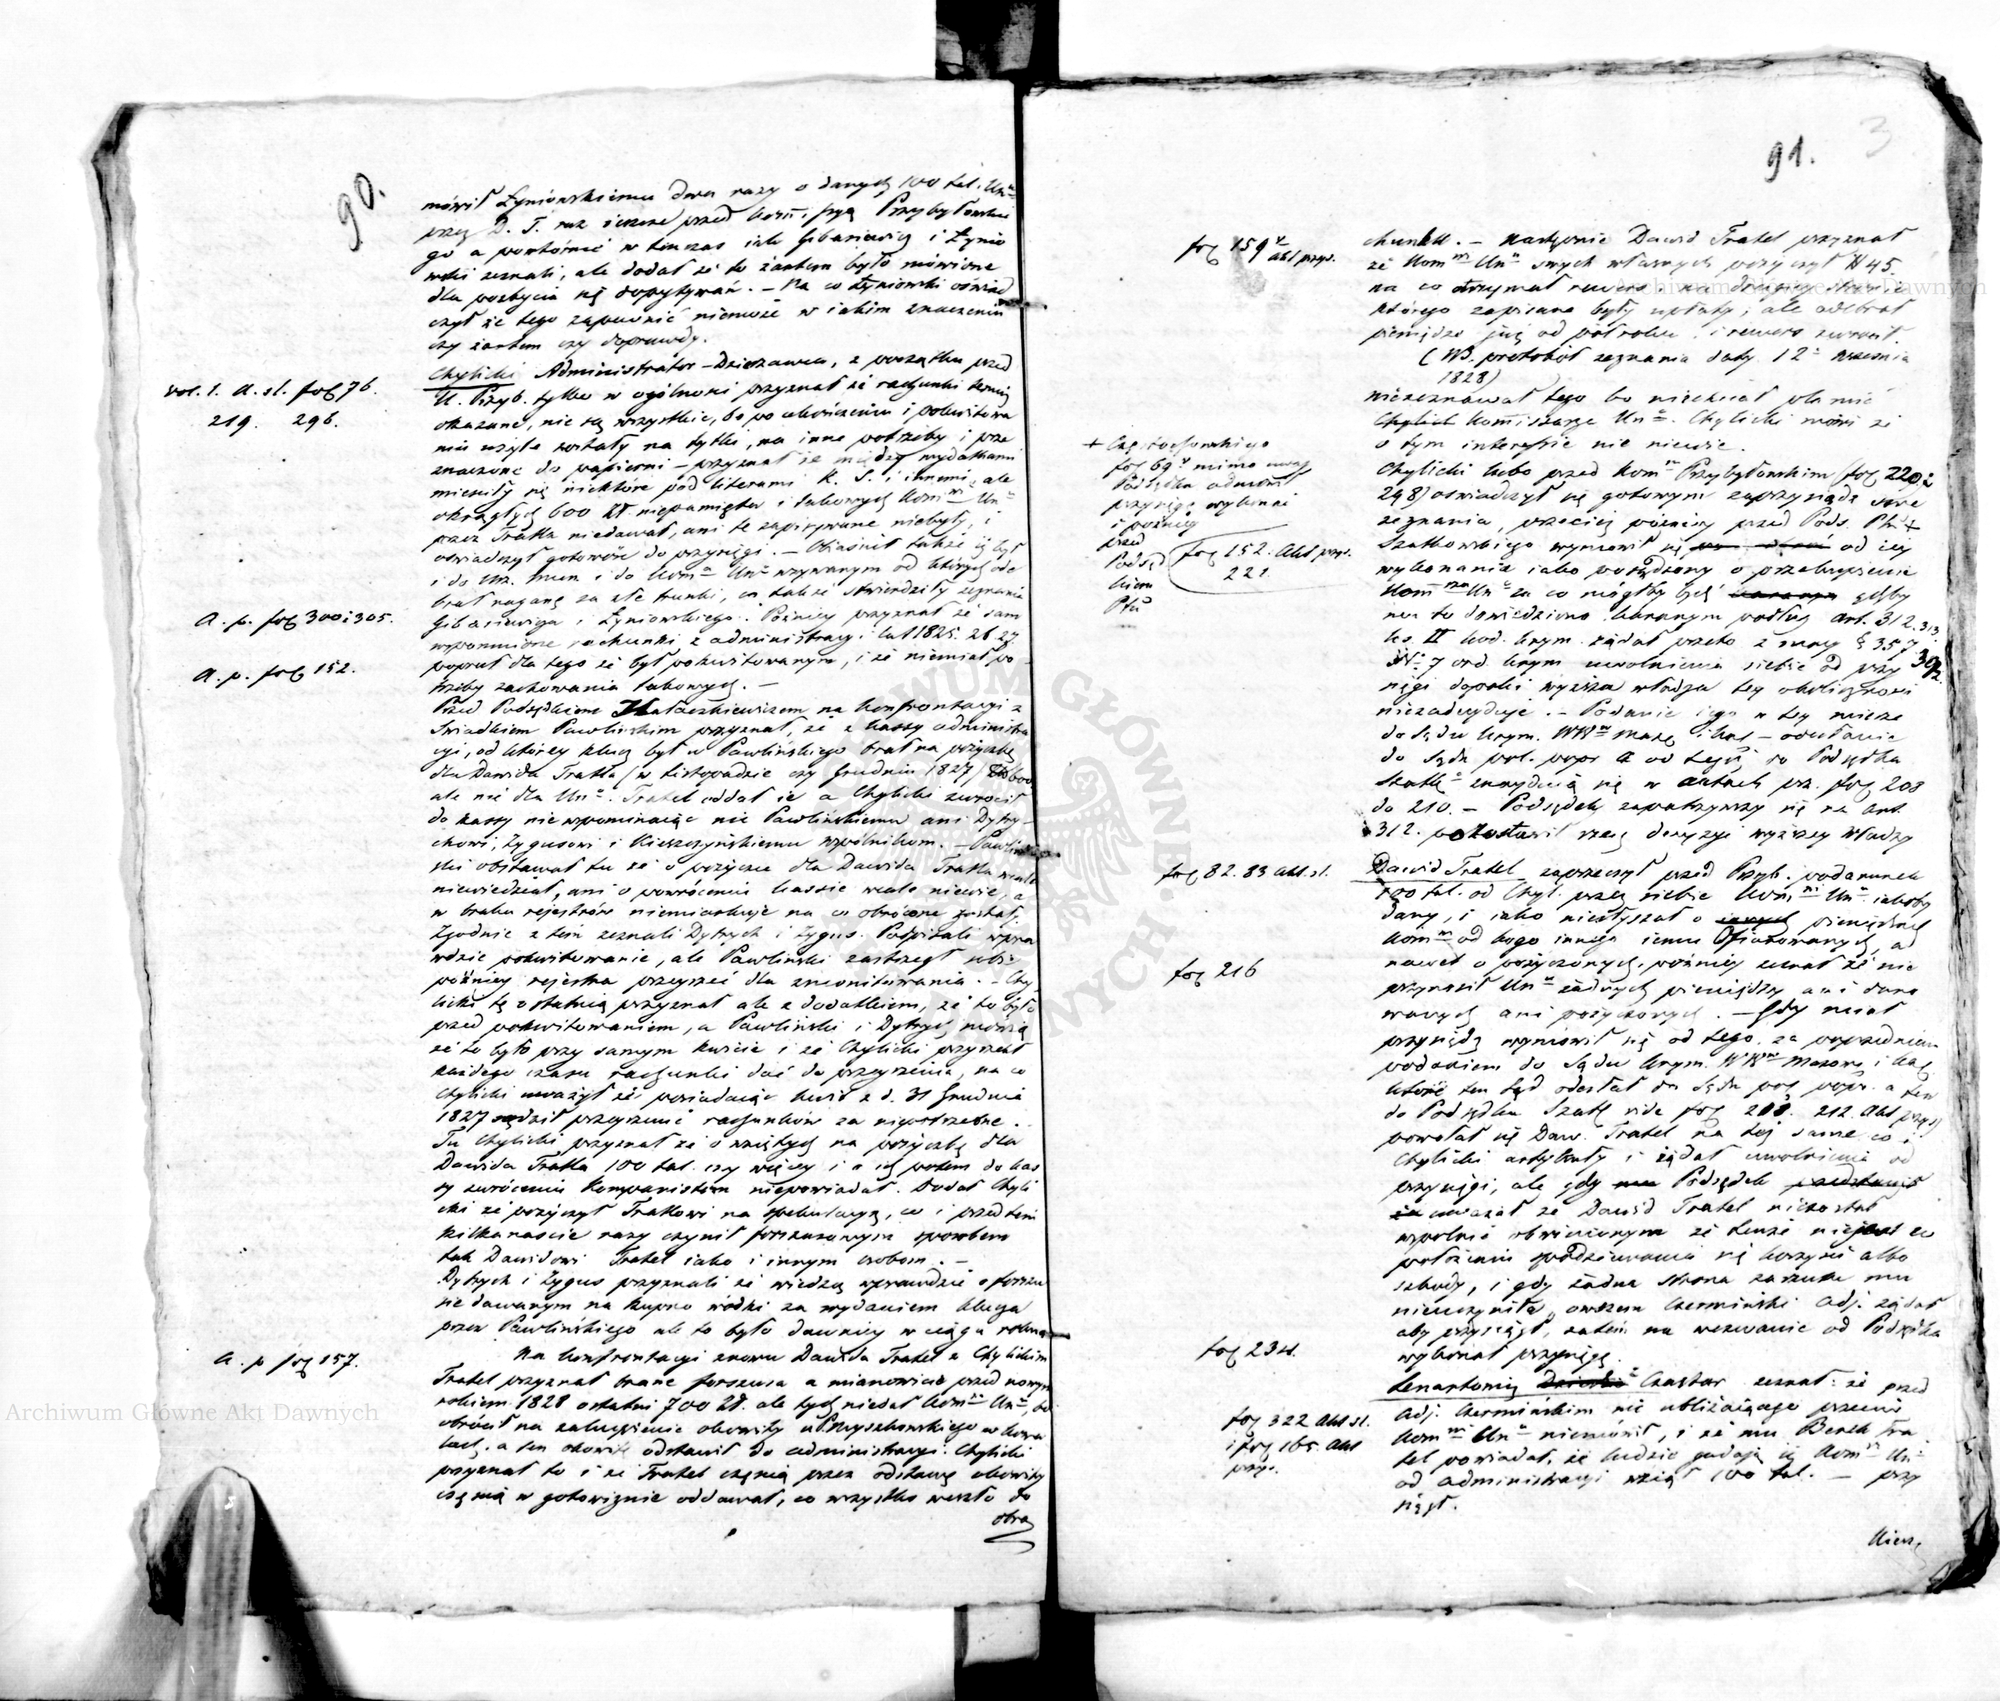 90.
mówił Żyniowskiemu dwa razy o danych 100 tal. Unu
przez D. T. raz jeszcze przed Przybyłowskie
go a powtórnie w tenczas jak Gibasiewicz i Żynio
wski zeznali, ale dodał że to żartem było mówione
dla pozbycia się dopytywań. – Na co Żyniowski oświad
czył że tego zapewnić niemoże w jakim znaczeniu
czy żartem czy doprawdy.
Chylicki Administrator – Dzierżawca, z początku przed
K. Przyb. tylko w ogólności przyznał że rachunki
okazane, nie są wszystkie, bo po ukończeniu i pokwitowa
niu użyte zostały na tytki, na inne potrzeby i prze
znaczone do papierni – przyznał że między wydatkami
mieściły się niektóre pod literami K. S. i innemi, ale
okrągłych 600 zł. niepamięta i takowych Komm Unu
przez Tratla niedawał, ani te zapisywane niebyły, i
oświadczył gotowość do przysięgi. – Objaśnił także iż był
i do Urz. Mun i do Koma Unu wzywanym od których ode
brał naganę za złe trunki, co także stwierdziły zeznania
Gibasiewicza i Żyniowskiego. Później przyznał że sam
wspomnione rachunki z administracyi lat 1825. 26 27
popruł dla tego że był pokwitowanym, i że niemiał po
trzeby zachowania takowych. –
Przed Podsędkiem na konfrontacyi z
świadkiem Pawlińskim przyznał, że z kassy administra
cyi, od której klucz był u Pawlińskiego brał na pożyczkę
dla Dawida Tratla (w Listopadzie czy Grudniu 1827) 600
ale nie dla Una. Tratel oddał je a Chylicki zwrócił
do kassy nie wspominając nic Pawlińskiemu ani Dytry
chowi, Zygusowi i Kieszczyńskiemu wspólnikom. – Pawliń
ski obstawał tu że o pożyczce dla Dawida Tratla wcale
niewiedział, ani o powróceniu kassie wcale niewie, a
w braku rejestrów niemiarkuje na co obrócone zostały.
Zgodnie z tem zeznali Dytrych i Zygus. Podpisali wpra
wdzie pokwitowanie, ale Pawliński zastrzegł sobie
później rejestra przejrzeć dla zmonitowania. – Chy
licki tę ostatnią przyznał ale z dodatkiem, że to było
przed pokwitowaniem, a Pawliński i Dytrych mówią
że to było przy samym kwicie i że Chylicki przyrzekł
każdego czasu rachunki dać do przejrzenia, na co
Chylicki uważył że posiadając kwit z d. 31 Grudnia
1827 sądził przejrzenie rachunków za niepotrzebne.
Tu Chylicki przyznał że o wziętych na pożyczkę dla
Dawida Tratla 100 tal. czy więcej i o ich potem do kas
sy zwróceniu kompanistom niepowiadał. Dodał Chyli
cki że pożyczył Tratlowi na spekulacyą, co i przed tem
kilkanaście razy czynił forszusowym sposobem
tak Dawidowi Tratel jako i innym osobom. –
Dytrych i Zygus przyznali że wiedzą wprawdzie o forszu
sie dawanym na kupno wódki za wydaniem klucza
przez Pawlińskiego ale to było dawniej w ciągu
Na konfrontacyi znowu Dawida Tratel z Chylickim
Tratel przyznał brane forszusa a mianowicie przed nowym
rokiem 1828 ostatni 700 zł. ale tych niedał Komm Unu, bo
obrócił na zakupienie okowity u Pruszkowskiego w
lach, a ten okowitę odstawił do administracyi. Chylicki
przyznał to i że Tratel częścią przez odstawę okowity
częścią w gotowiznie oddawał, co wszystko weszło do
obra
vol. 1. A. sl. fol 76.
219. 296.
A. p. fol 300 i 305.
A. p. fol 152.
A. p fol 157.
91.
3
chunku. – Następnie Dawid Tratel przyznał
że Komm Unu swych własnych pożyczył # 45.
na co otrzymał rewers na drugiej stronie
którego zapisane były wpłaty; ale odebrał
pieniądze już od pół roku i rewers zwrócił.
(NB. protokół zeznania daty 12 Września
1828)
niezeznawał tego bo niechciał plamić
Komisarza Una. Chylicki mówi że
o tym interessie nic niewie.
Chylicki lubo przed Komm Przybyłowskim (fol 220 i
298) oświadczył się gotowym zaprzysiądz swe
zeznania, przeciej później przed Pods. Ptu +
Szatkowskiego wymówił się od jej
wykonania jako posądzony o przekupienie
Komm Una za co mógłby być gdyby
mu to dowiedziono karanym podług art. 312. 313.
ks. II kod. karn. żądał przeto z mocy § 357
N. 7 ord. krym uwolnienia siebie od przy 392.
sięgi dopóki wyższa władza tej okoliczności
niezadecyduje. – Podanie jego w tej mierze
do Sądu krym. WWm Mazo i Kal – odesłanie
do Sądu pol. popr a od tegoż do Podsędka
Szatk. znajdują się w aktach prz. fol 208
do 210. – Podsędek zapatrzywszy się na art.
312. pozostawił rzecz decyzyi wyższej Władzy
Dawid Tratel zaprzeczył przed Przyb. podarunek
100 tal. od Chyl. przez siebie Komm Unu jakoby
dany, i jako niesłyszał o pieniędzach
Komm od kogo innego jemu ofiarowanych, a
nawet o pożyczonych, później zeznał że nie
przynosił Unu żadnych pieniędzy ani daro
wanych ani pożyczonych. – Gdy miał
przysiądz wymówił się od tego, za poprzednim
podaniem do Sądu krym. WWm Mazow i Kal
które ten Sąd odesłał do Sądu pol. popr. a ten
do Podsędka Szatk vide fol 211. 212. Akt przys.)
powołał się Daw. Tratel na też same co i
Chylicki artykuły i żądał uwolnienia od
przysięgi, ale gdy Podsędek
uważał że Dawid Tratel niezostał
wspólnie obwinionym że tenże niejest w
położeniu spodziewania się korzyści albo
szkody, i gdy żadna strona zarzutu mu
nieuczyniła, owszem Czermiński Adj. żądał
aby przysiągł, zatem na wezwanie od Podsędka
wykonał przysięgę.
zeznał: że przed
Adj. Czermińskim nic ubliżającego przeciw
Komm Unu niemówił, i że mu Berek Tra
tel powiadał, że ludzie gadają iż Komm Un
od administracyi wziął 100 tal. – przy
siągł.
fol 159 v akt przys.
+ Częstochowskiego
fol 69 v mimo uwag
Podsędka odmówił
przysięgę wykonać
i później
przed
Podsęd
kiem
Ptu
fol 152. Akt przys.
221.
fol 82. 83 Akt. sl.
fol 216
fol 234.
fol 322 Akt sl.
i fol 165. Akt
przys.